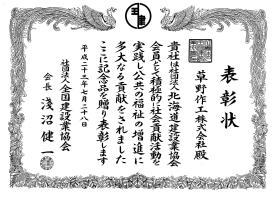 表彰状
草野作工株式会社殿
貴社は社団法人北海道建設業協会
会員として積極的に社会貢献活動を
実践し公共の福祉の増進に
多大なる貢献をされました
ここに記念品を贈り表彰します
平成二十三年七月二十八日
社団法人全国建設業協会
会長 淺沼健一